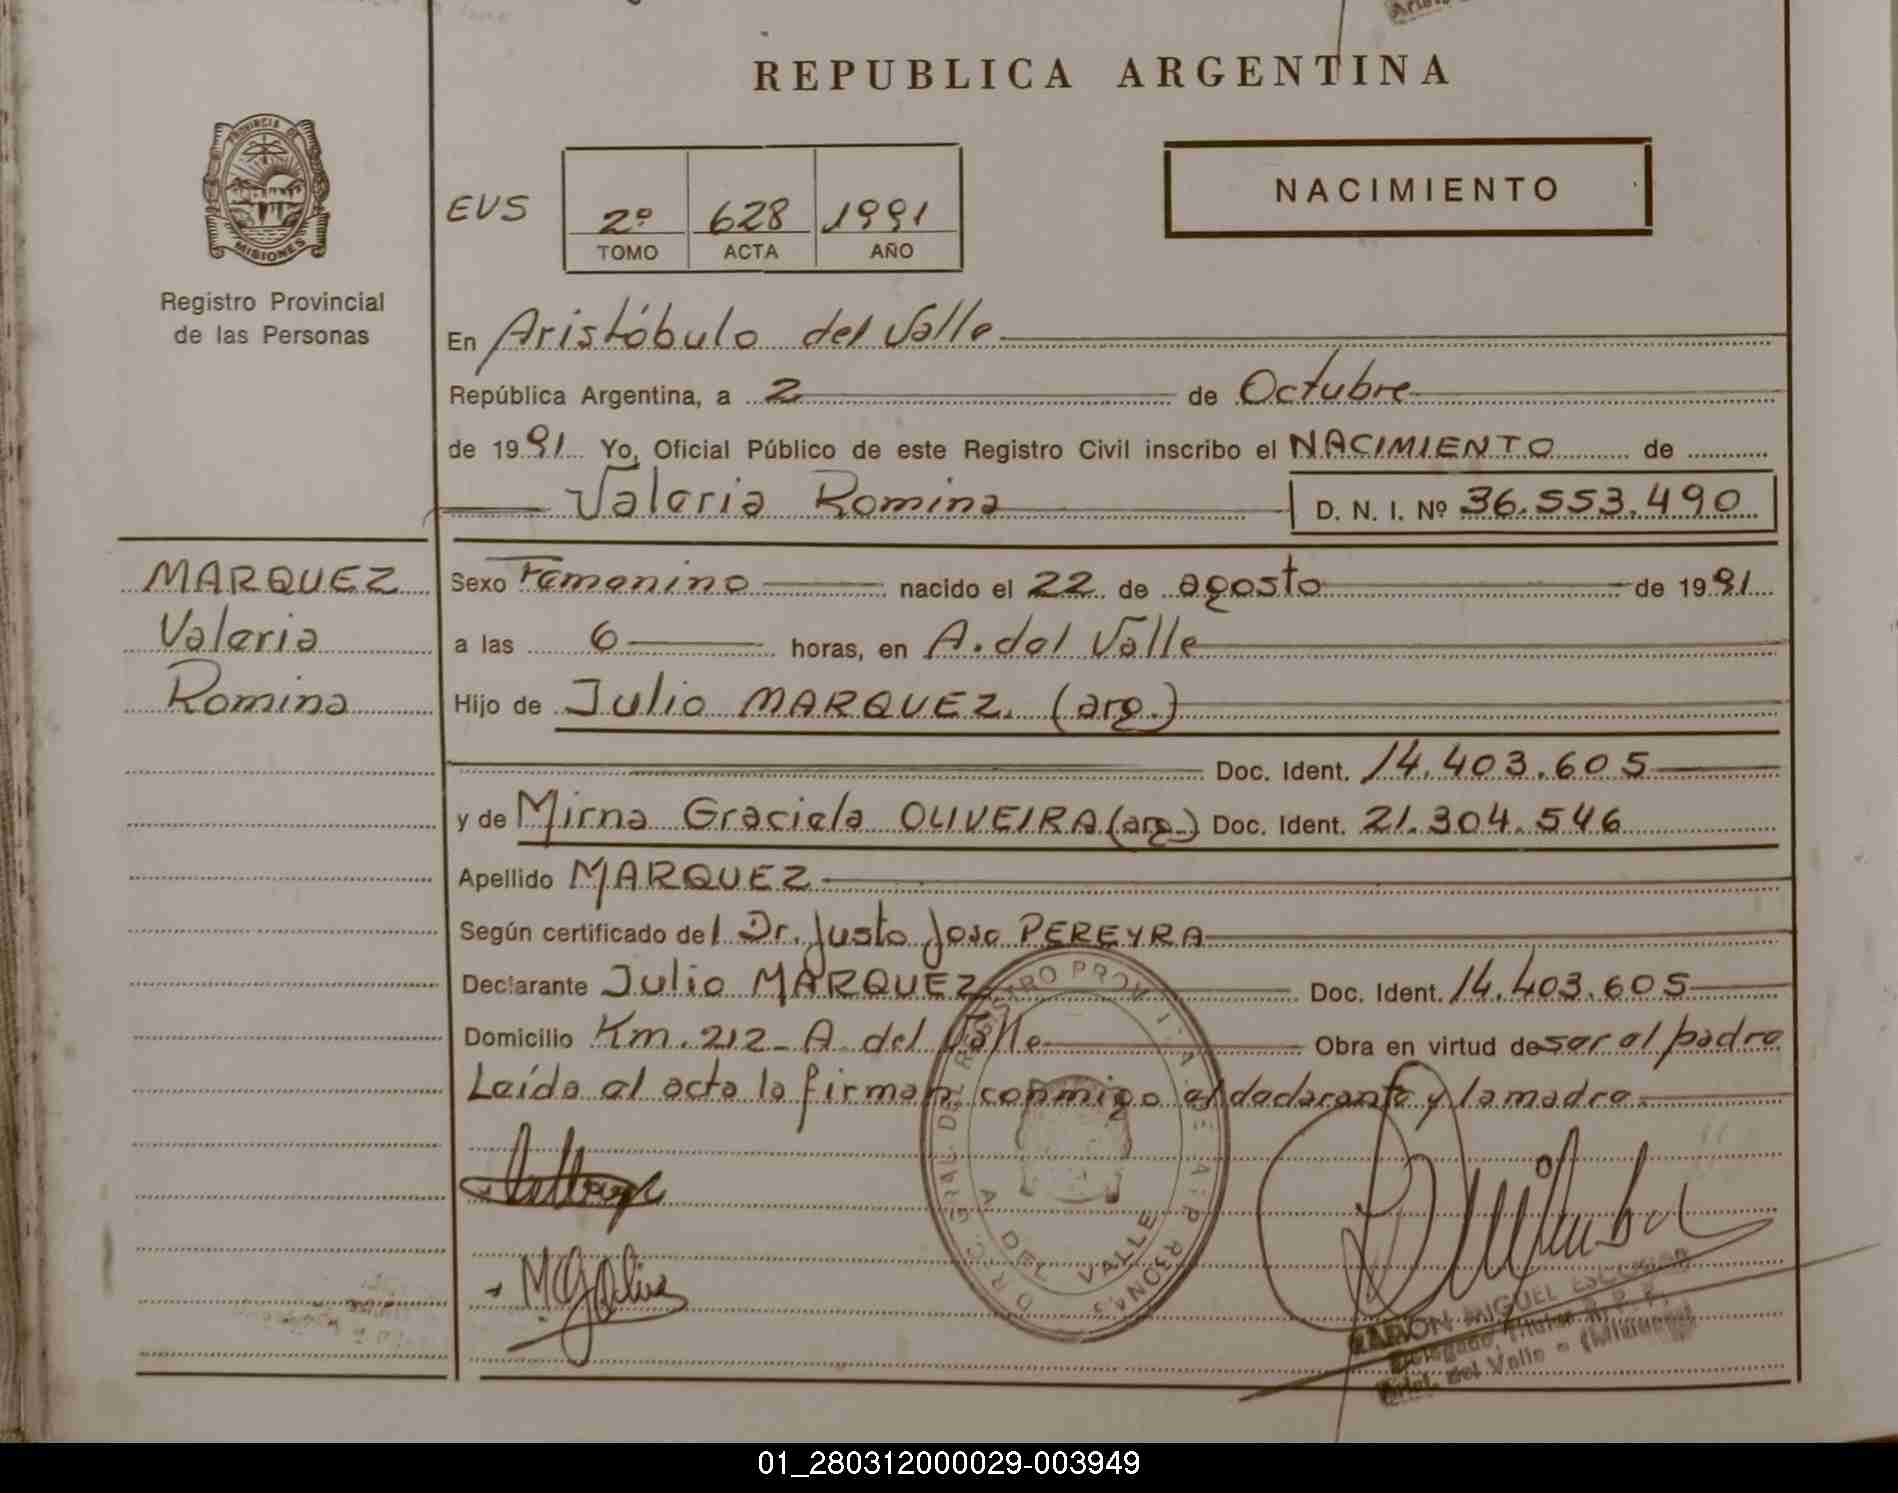 REPUBLICA ARGENTINA
PROVINCIA DE
MISIONES
Registro Provincial
de las Personas
EVS
2º 628 1991
TOMO ACTA AÑO
NACIMIENTO
En Aristóbulo del Valle
República Argentina, a 2 de Octubre
de 1991 Yo, Oficial Público de este Registro Civil inscribo el NACIMIENTO de
Valeria Romina D. N. I. Nº 36.553.490
MARQUEZ
Valeria
Romina
Sexo Femenino nacido el 22 de agosto de 1991
a las 6 horas, en A. del Valle
Hijo de Julio MARQUEZ. (arg.)
Doc. Ident. 14.403.605
y de Mirna Graciela OLIVEIRA (arg.) Doc. Ident. 21.304.546
Apellido MARQUEZ
Según certificado del Dr. Justo Jose PEREYRA
Declarante Julio MARQUEZ Doc. Ident. 14.403.605
Domicilio Km. 212 - A del Valle Obra en virtud de ser el padre
Leída el acta la firman conmigo el declarante y la madre.
A DEL VALLE
RAMON MIGUEL ESCOBAR
Delegado Titular R. P. P.
Arist. del Valle - (Misiones)
01_280312000029-003949